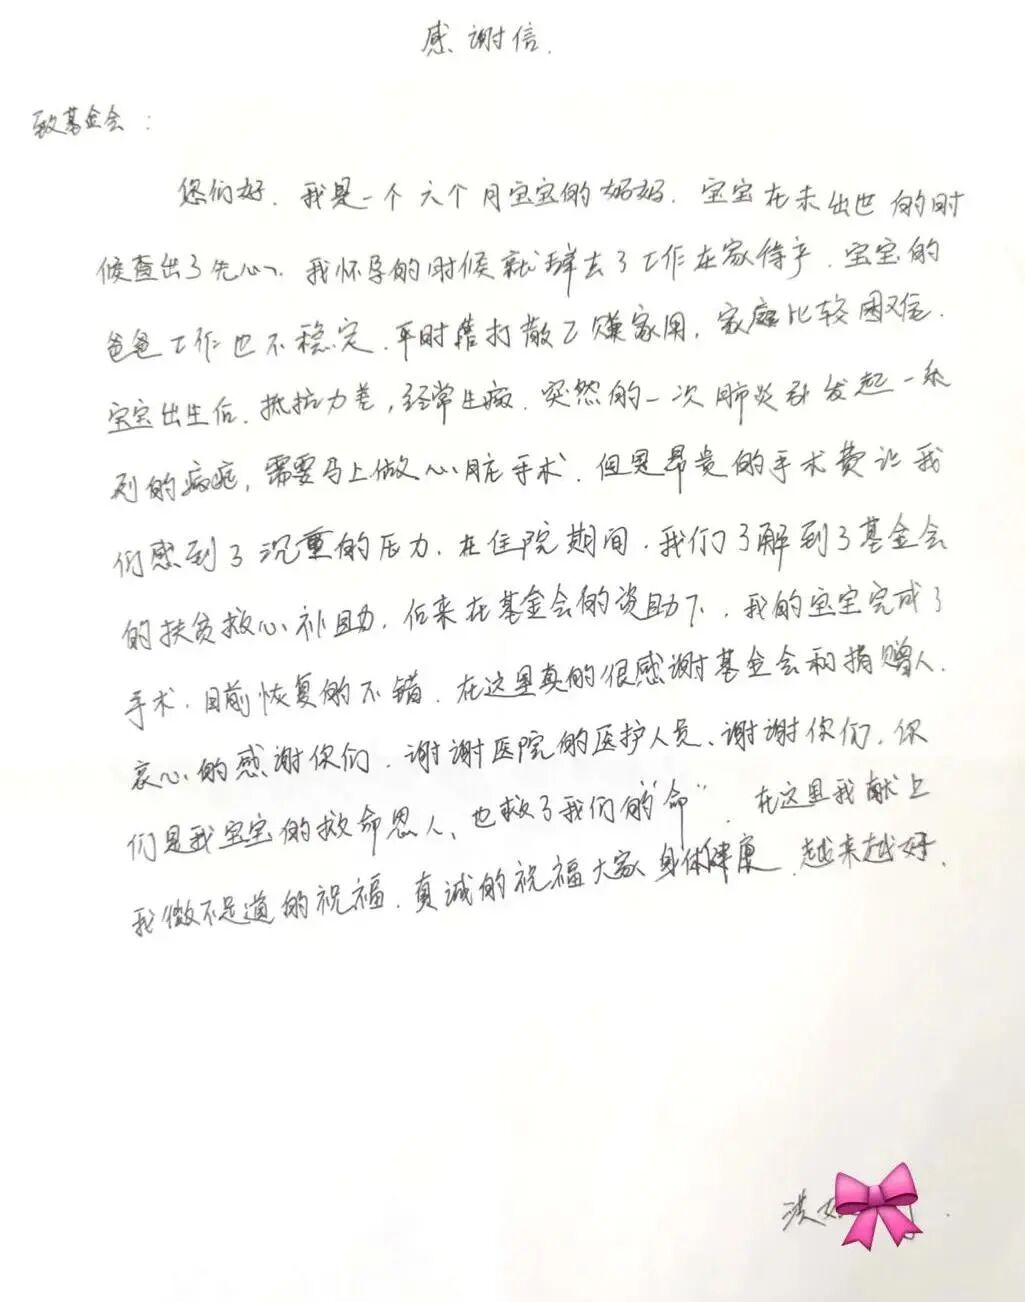 感谢信.
致基金会:
您们好. 我是一个六个月宝宝的妈妈. 宝宝在未出世的时
候查出了先心. 我怀孕的时候就辞去了工作在家待产. 宝宝的
爸爸工作也不稳定. 平时靠打散工赚家用, 家庭比较困难.
宝宝出生后. 抵抗力差, 经常生病. 突然的一次肺炎引发起一系
列的病症, 需要马上做心脏手术. 但是昂贵的手术费让我
们感到了沉重的压力. 在住院期间. 我们了解到了基金会
的扶贫救心补助. 后来在基金会的资助下, 我的宝宝完成了
手术. 目前恢复的不错. 在这里真的很感谢基金会和捐赠人.
衷心的感谢你们. 谢谢医院的医护人员、谢谢你们. 你
们是我宝宝的救命恩人、也救了我们的“命”. 在这里我献上
我微不足道的祝福. 真诚的祝福大家身体健康. 越来越好.